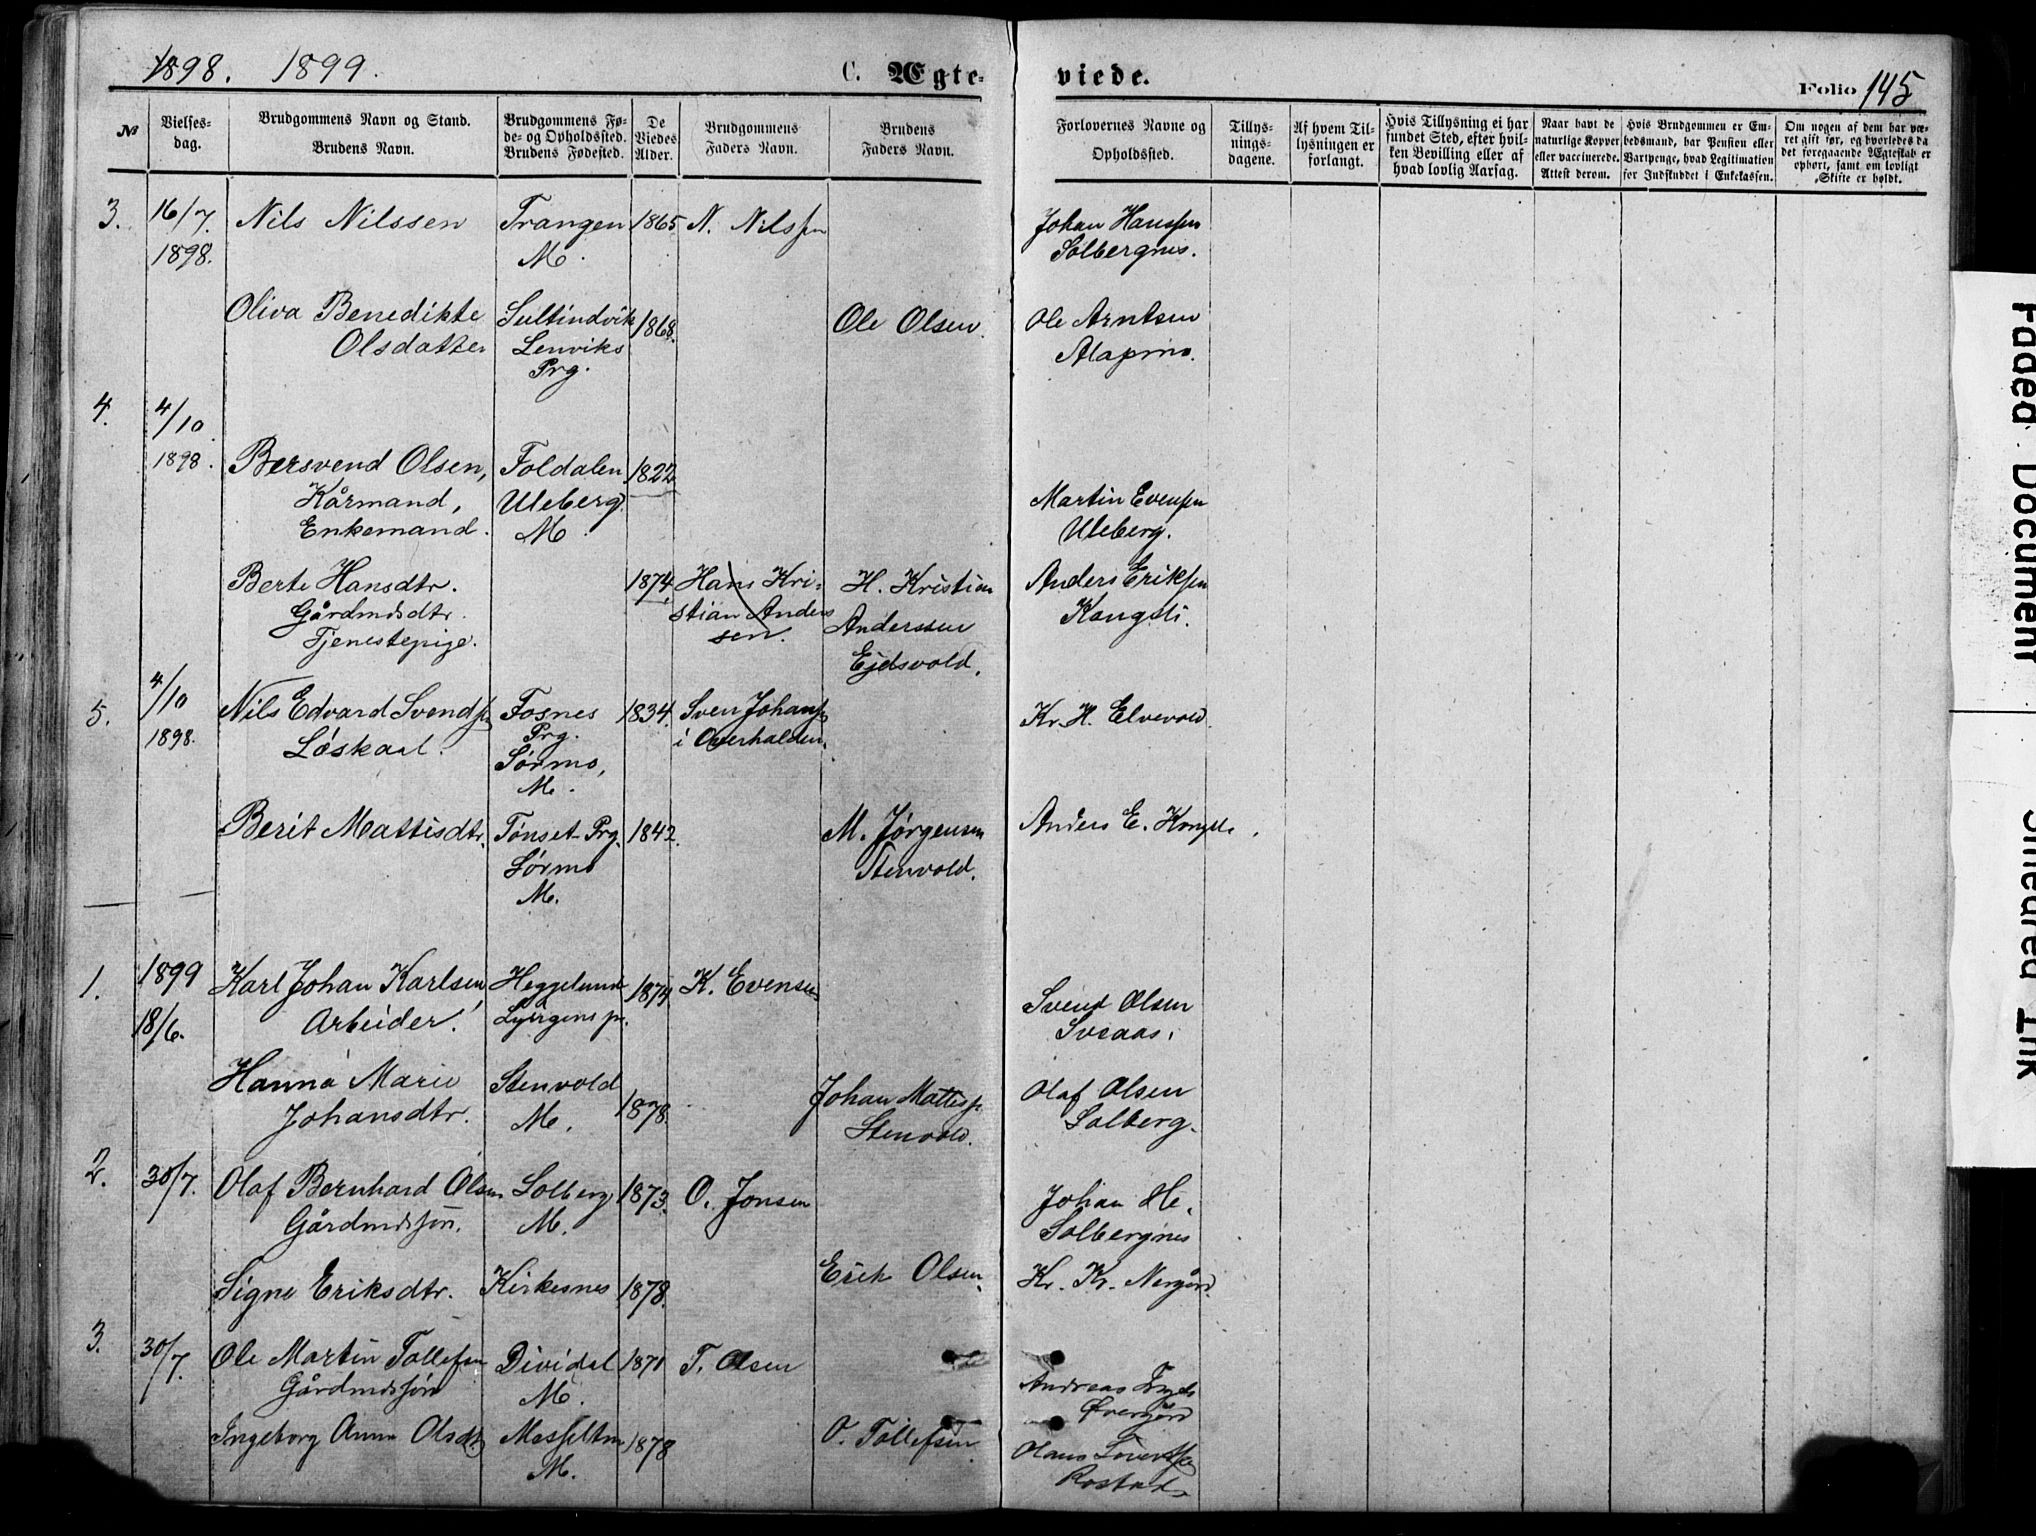 1898. 1899.
C. Ægte-
viede.
Folio 145
№
Vielses-
dag.
Brudgommens Navn og Stand.
Brudens Navn.
Brudgommens Fø-
de- og Opholdssted.
Brudens Fødested.
De
Viedes
Alder.
Brudgommens
Faders Navn.
Brudens
Faders Navn.
Forlovernes Navne og
Opholdssted.
Tillys-
nings-
dagene.
Af hvem Til-
lysningen er
forlangt.
Hvis Tillysning ei har
fundet Sted, efter hvil-
ken Bevilling eller af
hvad lovlig Aarsag.
Naar havt de
naturlige Kopper
eller vaccinerede.
Attest derom.
Hvis Brudgommen er Em-
bedsmand, har Pension eller
Vartpenge, hvad Legitimation
for Indskuddet i Enkekassen.
Om nogen af dem har væ-
ret gift før, og hvorledes da
det foregaaende Ægteskab er
ophørt, samt om lovligt
Skifte er holdt.
3. 16/7. Nils Nilssen Trangen 1865. N. Nilssen Johan Hanssen
1898. M. Solbergnes.
Oliva Benedikte Sultindvik 1868. Ole Olsen. Ole Arntsen
Olsdatter Lenviks
Prg.
4. 4/10
1898. Bersvend Olsen, Foldalen 1822
Kårmand, Uleberg. Martin Evensen
Enkemand. M. Uleberg.
Berte Hansdtr. 1874. Hans Kri- H. Kristian Anders Eriksen
Gårdmdsdtr. stian Anders Anderssen Kongsli.
Tjenestepige. sen. Ejdsvold.
5. 4/10 Nils Edvard Svendsen Fosnes 1834. Sven Johansen Kr. H. Elvevold.
1898. Löskarl. Prg. i Overhalden.
Sørmo,
M.
Berit Mattisdtr. Tönset Prg. 1842. M. Jørgensen Anders E. Kongsli.
Sørmo Stenvold.
M.
1. 1899 Karl Johan Karlsen, Heggelund 1874 K. Evensen Svend Olsen
18/6. Arbeider. Lyngens pr. Sveaas.
Hanna Marie Stenvold 1878. Johan Mattesen Olaf Olsen
Johansdtr. M. Stenvold. Solberg.
2. 30/7. Olaf Bernhard Olsen Solberg, 1873. O. Jonsen Johan H.
Gårdmdssön. M. Solbergnes
Signe Eriksdtr. Kirkesnes 1878. Erik Olsen. Kr. Kr. Nergård.
3. 30/7. Ole Martin Tollefsen Dividal 1871 T. Olsen Andreas
Gårdmdssön M. Øvergård
Ingeborg Anna Olsdtr. M. 1878 O. Tollefsen Olaus
Rostad.
Faded Document
Smeared Ink